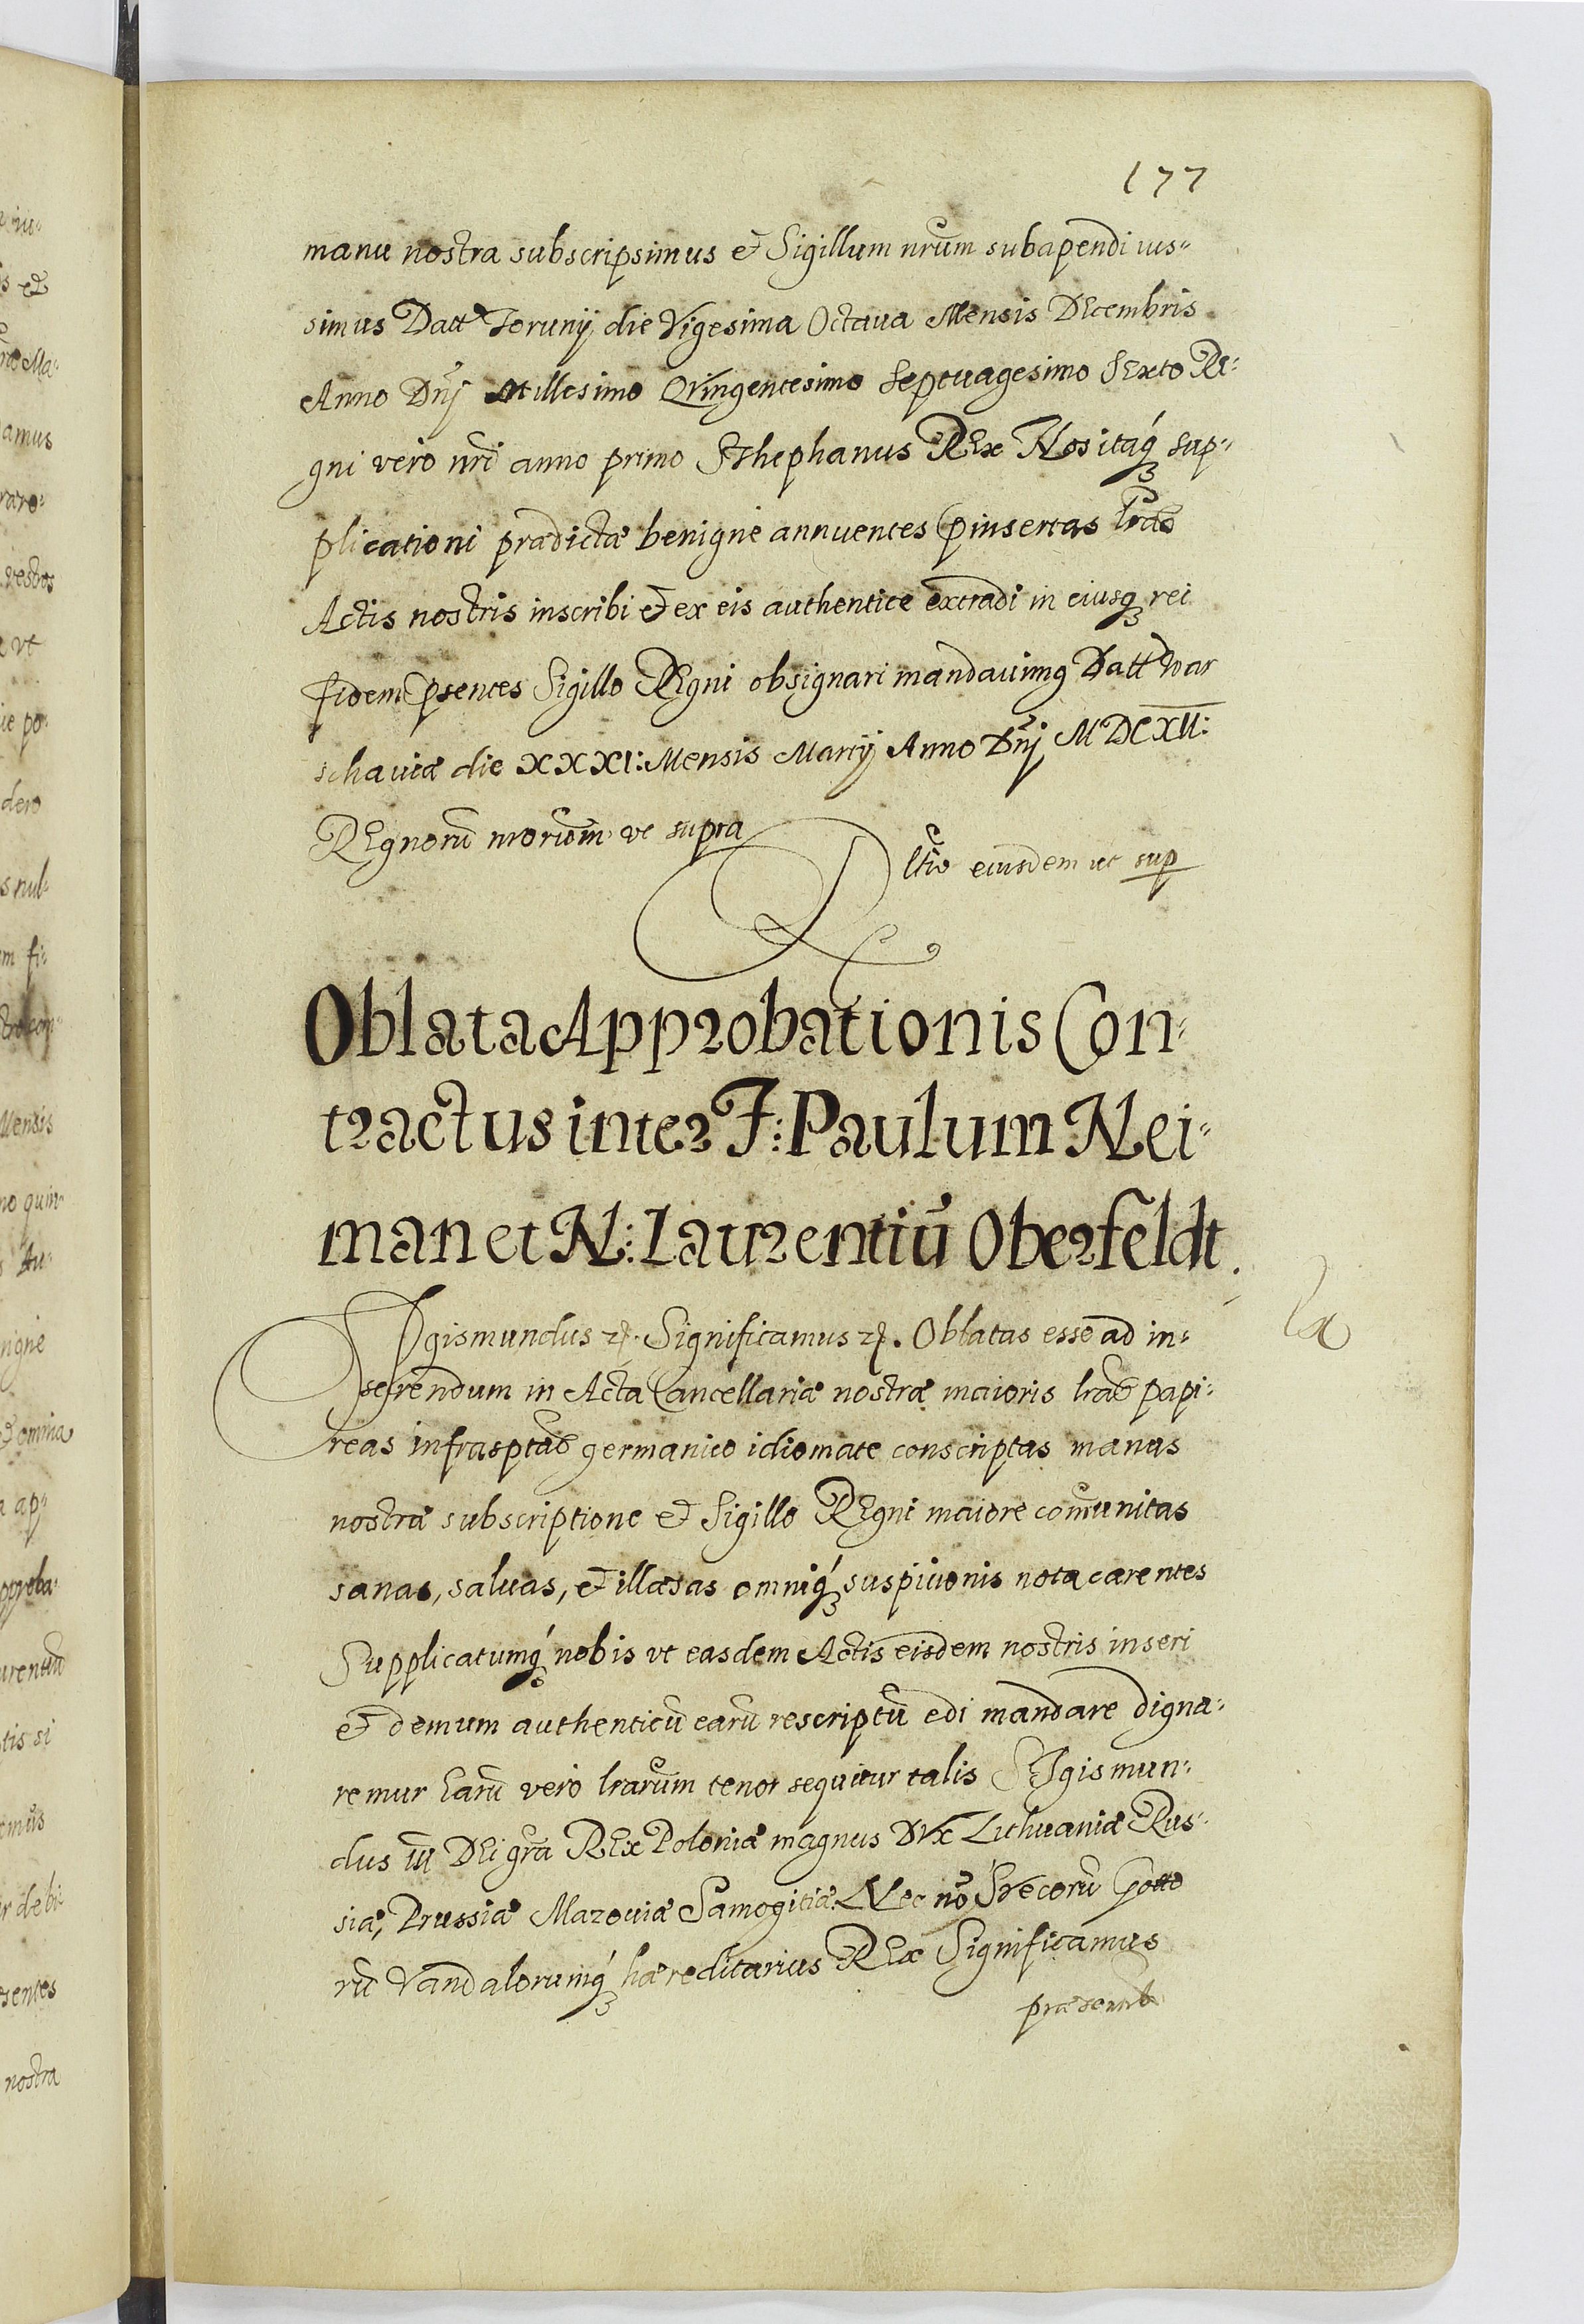 177
manu nostra subscripsimus et Sigillum nrum subapendi ius-
simus Datt Torunij die Vigesima Octaua Mensis Decembris
Anno Dnj Millesimo Qvingentesimo Septuagesimo Sexto Re-
gni vero nri anno primo Sthephanus REx Nos itaq sup-
plicationi pradictæ benigne annuentes pinsertas lras
Actis nostris inscribi et ex eis authentice extradi in eiusq rei
fidem psentes Sigillo REgni obsignari mandauimq Datt War
schaviæ die XXXI: Mensis Martij Anno Dnj MDCXII:
REgnorū nrorum ut supra
Rltio eiusdem ut sup
Oblata Approbationis Con-
tractus inter J: Paulum Nei-
man et N: Laurentiū Oberfeldt.
SIgismundus etc. Significamus etc. Oblatas esse ad in-
serendum in Acta Cancellariæ nostræ maioris lras papi-
reas infrasptas germanico idiomate conscriptas manus
nostræ subscriptione et Sigillo REgni maiore comunitas
sanas, saluas, et illæsas omniq suspicionis nota carentes
Supplicatumq nobis ut easdem Actis eisdem nostris inseri
et demum authenticū earū rescriptū edi mandare digna-
remur Earū vero lrarum tenor sequitur talis SIgismun-
dus III DEi gra REx Poloniæ magnus DVx Lithuaniæ Rus-
siæ, Prussiæ Mazouiæ Samogitiæ. Nec nō Svecorū Gotto
rū Vandalorumq hæreditarius REx Significamus
præsentib
La